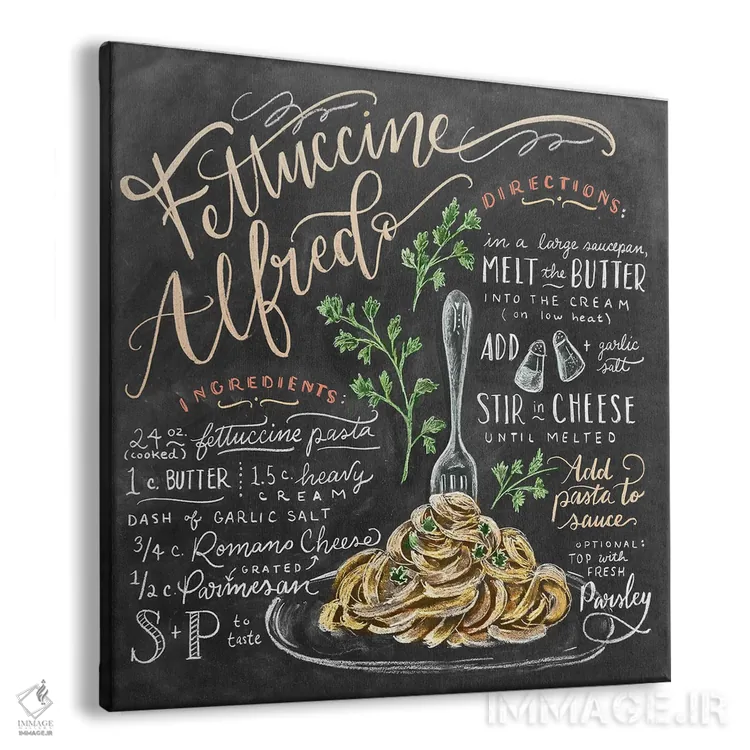 Fettuccine
Alfredo
INGREDIENTS:
24 oz. fettuccine pasta
(cooked)
1 c. BUTTER
1.5 c. heavy
CREAM
DASH of GARLIC SALT
3/4 c. Romano Cheese
GRATED
1/2 c. Parmesan
S + P to
taste
DIRECTIONS:
in a large saucepan,
MELT the BUTTER
INTO THE CREAM
(on low heat)
ADD + garlic
salt
STIR in CHEESE
UNTIL MELTED
Add
pasta to
sauce
OPTIONAL:
TOP with
FRESH
Parsley
IMMAGE
IMMAGE.IR
IMMAGE.IR